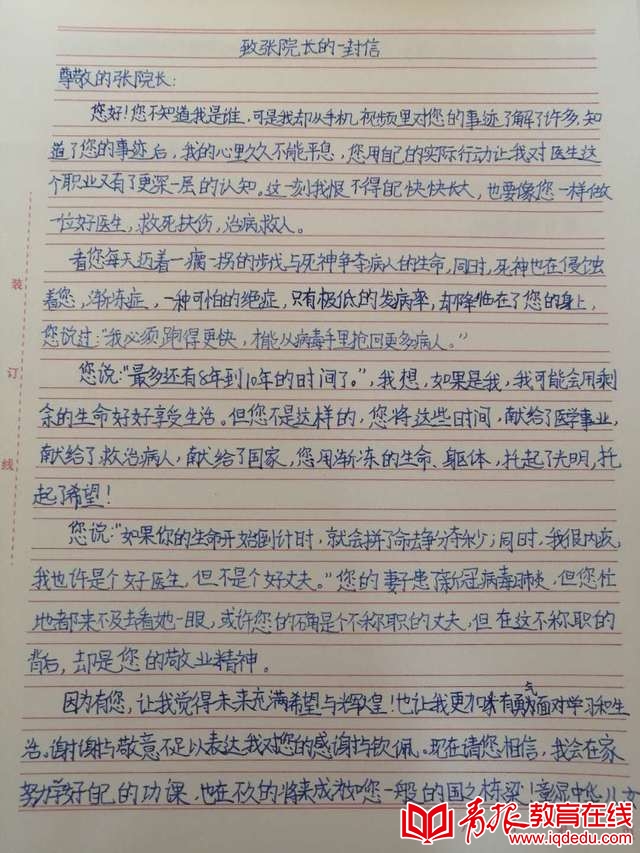 致张院长的一封信
尊敬的张院长：
您好！您不知道我是谁，可是我却从手机视频里对您的事迹了解了许多，知
道了您的事迹后，我的心里久久不能平息，您用自己的实际行动让我对医生这
个职业又有了更深一层的认知。这一刻我恨不得自己快快长大，也要像您一样做
一位好医生，救死扶伤，治病救人。
看您每天迈着一瘸一拐的步伐与死神争夺病人的生命，同时，死神也在侵蚀
着您，渐冻症，一种可怕的绝症，只有极低的发病率，却降临在了您的身上，
您说过：“我必须跑得更快，才能从病毒手里抢回更多病人。”
您说：“最多还有8年到10年的时间了。”，我想，如果是我，我可能会用剩
余的生命好好享受生活。但您不是这样的，您将这些时间，献给了医学事业，
献给了救治病人，献给了国家，您用渐冻的生命、躯体，托起了光明，托
起了希望！
您说：“如果你的生命开始倒计时，就会拼了命去争分夺秒；同时，我很内疚，
我也许是个好医生，但不是个好丈夫。”您的妻子患了新冠病毒肺炎，但您忙
地都来不及去看她一眼，或许您的确是个不称职的丈夫，但在这不称职的
背后，却是您的敬业精神。
因为有您，让我觉得未来充满希望与辉煌！也让我更加有勇气面对学习和生
活。谢谢与敬意不足以表达我对您的感谢与钦佩。现在请您相信，我会在家
努力学好自己的功课，也在不久的将来成为如您一般的国之栋梁！
装
订
线
青报教育在线
www.iqdedu.com